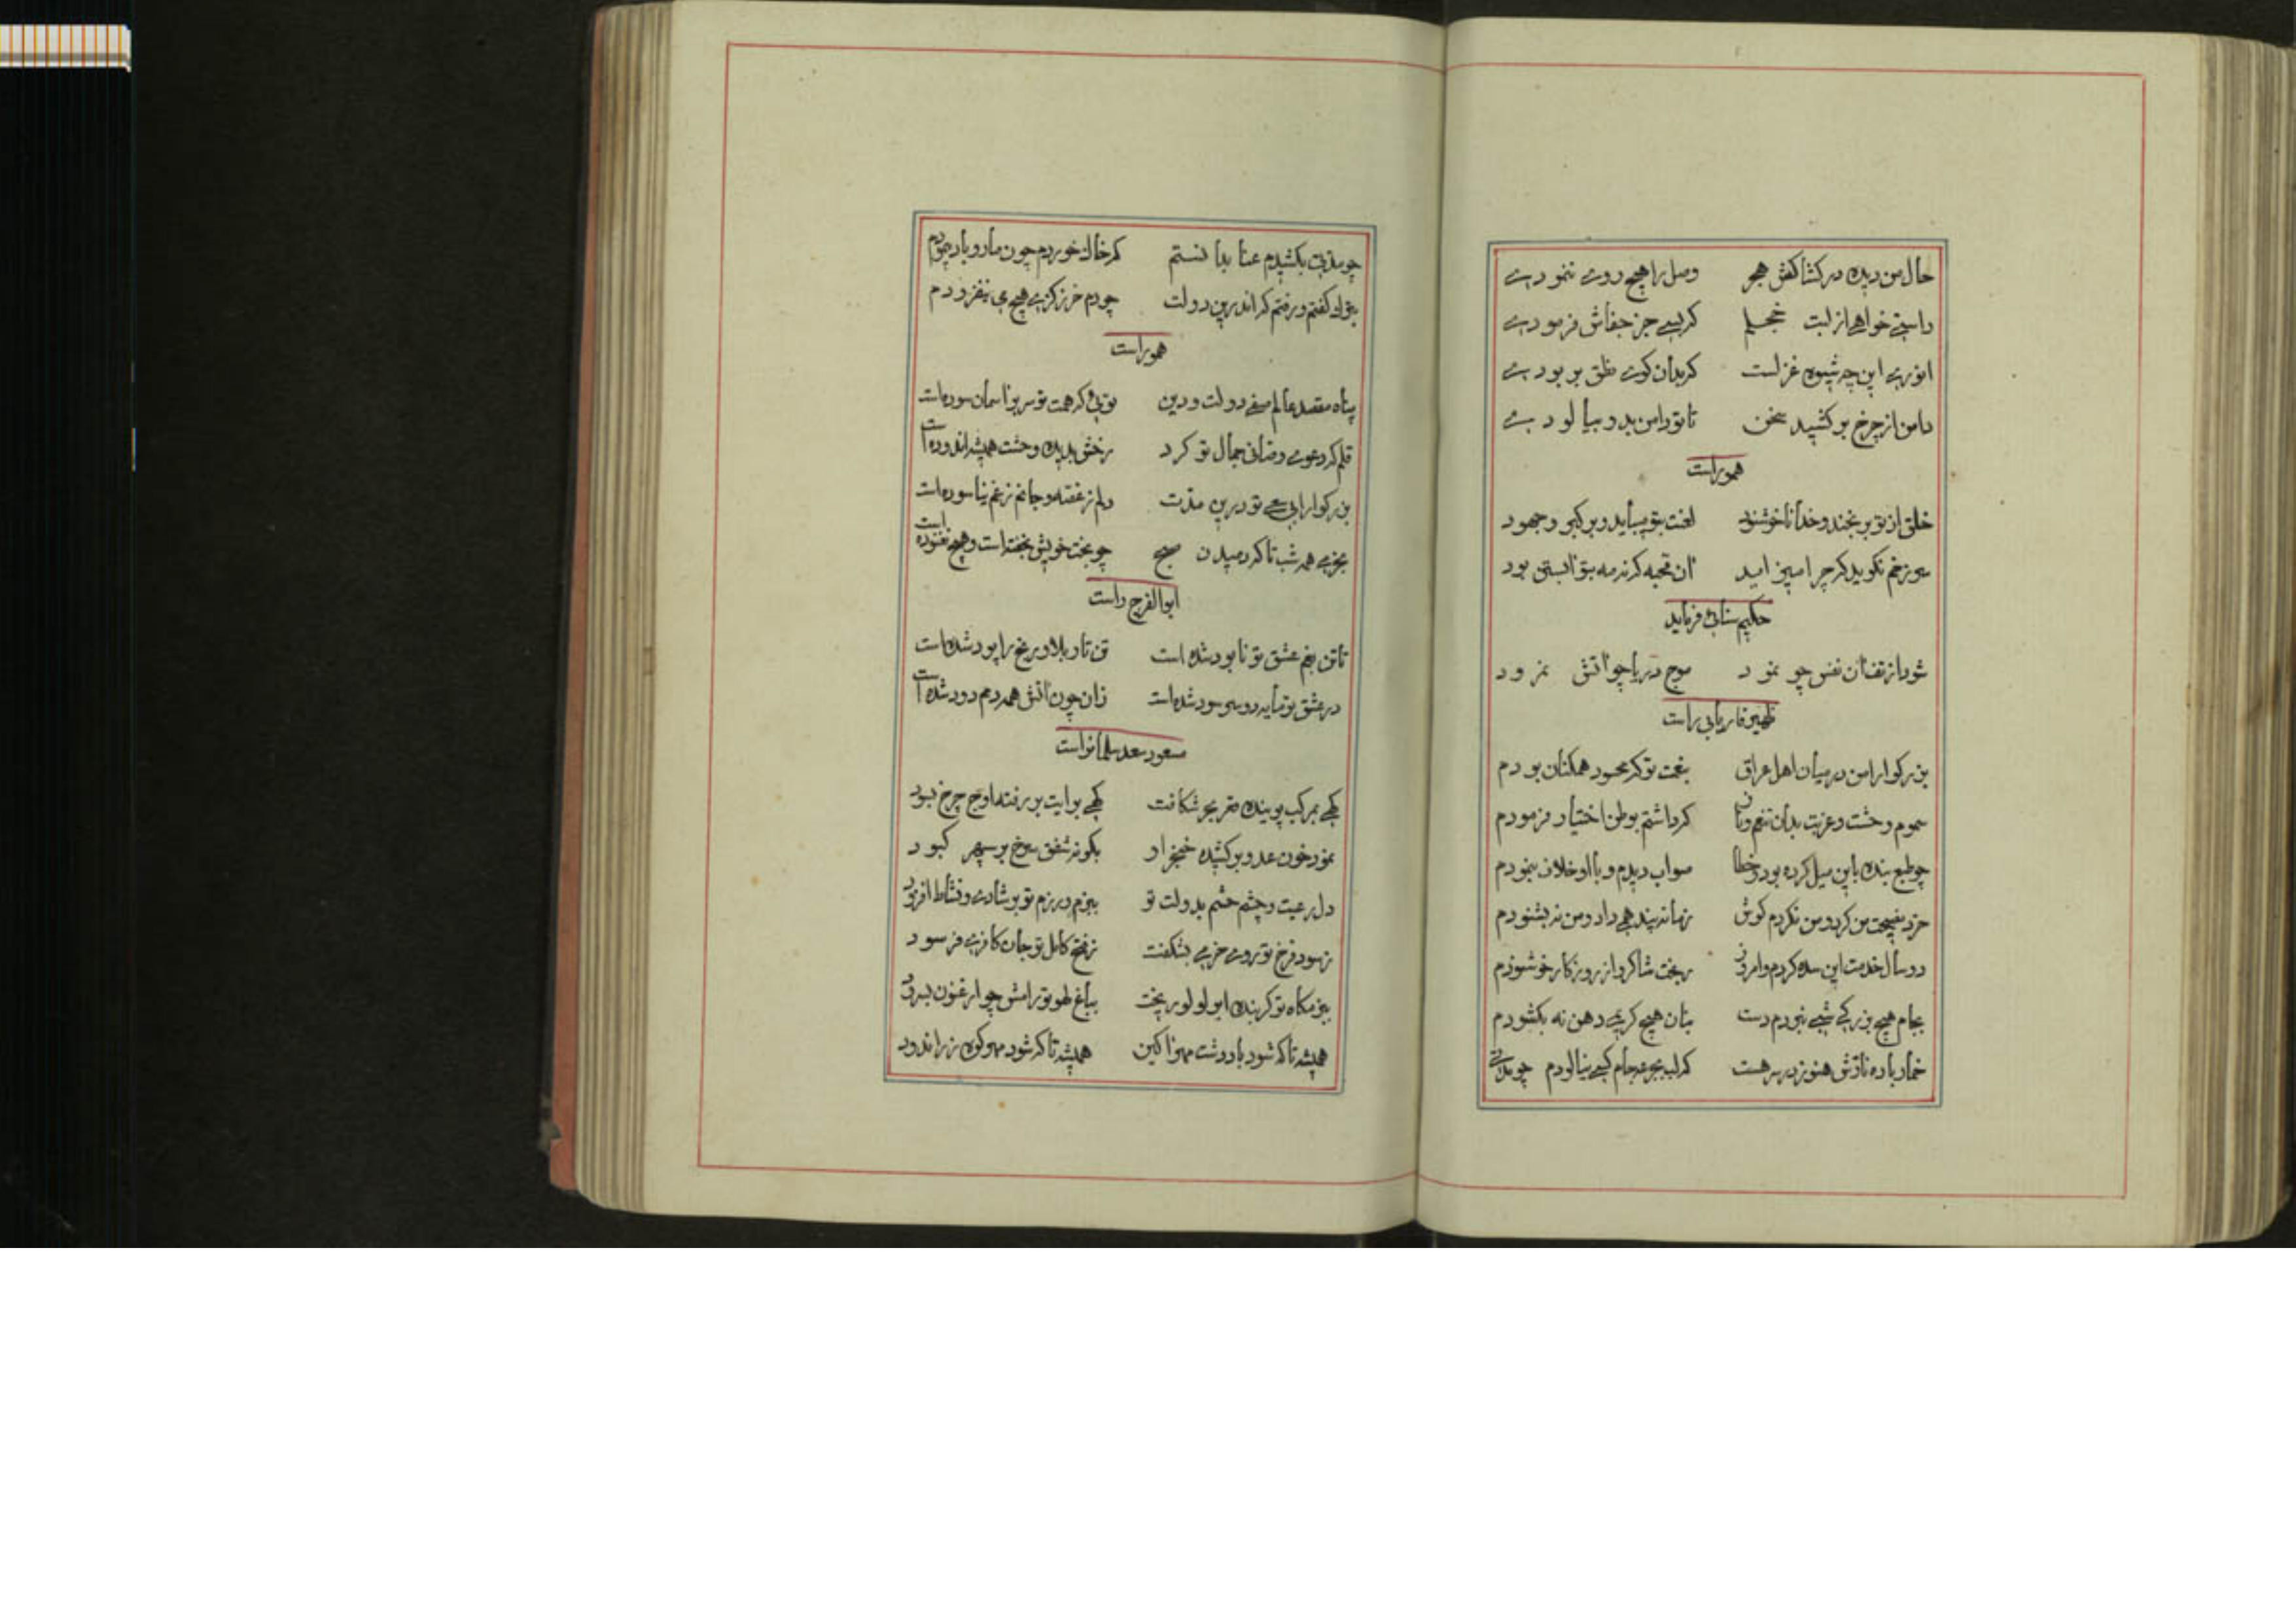 حال من دیده در کشاکش هجر وصل را هیچ روی ننمودی
راستی خواهی از لبت خجلم کز پی جز جفاش فرمودی
انوری این چه شیوه غزلست که بدان گوی نطق بربودی
دامن از چرخ بر کشید سخن تا تو دامن بدو بیالودی
هموراست
خلق از تو برنجند و خدا ناخوشنود لعنت بتو میبآید و بر گبر و جهود
حکیم سنائی فرماید
شود از تف آن نفس چو نمرود موج دریا چو آتش نمرود
ظهیر فاریابی راست
بزرکوارا من در میان اهل عراق بنعت تو که محسود همکنان بودم
سموم وحشت و غربت بدان تنعم و ناز که داشتم بوطن اختیار فرمودم
چو طبع بنده باین میل کرده بود خطا صواب دیدم و با او خلاف ننمودم
خرد نصیحت من کرد و من نکردم کوش زمانه پند همی داد و من نه بشنودم
دو سال خدمت این سده کردم و امروز
بجام هیچ بزرکی شبی نبردم دست بنان هیچ کریمی دهن نه بکشودم
خمار باده نازش هنوز در سر هست که لب بجرعه جام کسی نیالودم
چو مدتی بکشیدم عنا بدانستم که خاك خوردم چون مار و باد پیمودم
بترك کفتم و رفتم که اندرین دولت چو دم خر از کزی هیچ می نیفزودم
هموراست
پناه مقصد عالم صفی دولت و دین توئی که همت تو سر بر آسمان سوده است
قلم که دعوی وصافی جمال تو کرد رخش بدیده وحشت همیشه اندوده است
بزرکوارا بی سعی تو درین مدت دلم ز غصه و جانم ز غم نیاسوده است
بجزمی همه شب تا که دمیدن صبح چو بخت خویش نخفته است و هیچ نغنوده است
ابوالفرج راست
تا تن بغم عشق تو نابود شده است تن تار بلا و رنج را پود شده است
در عشق تو مایه دوسی سود شده است زان چون آتش همه دم دود شده است
مسعود سعد سلمانراست
کهی بمرکب پوینده قعر بحر شکافت کهی برایت بر رفته اوج چرخ بسود
نمود خون عدو بر کشیده خنجر او بکونه شفق سرخ بر سپهر کبود
دل رعیت و چشم حشم بدولت تو ببزم و رزم تو بر شادی و نشاط افزود
ز سود فرخ تو روی خرمی بشکفت ز فتح کامل تو جان کافری فرسود
ببزمکاه تو کربنده ابر لولو ریخت بباغ لهو تو رامش چو ارغنون بسرود
همیشه تا که شود باد دشت مهر اکین همیشه تا که شود مهر کوه زر اندود